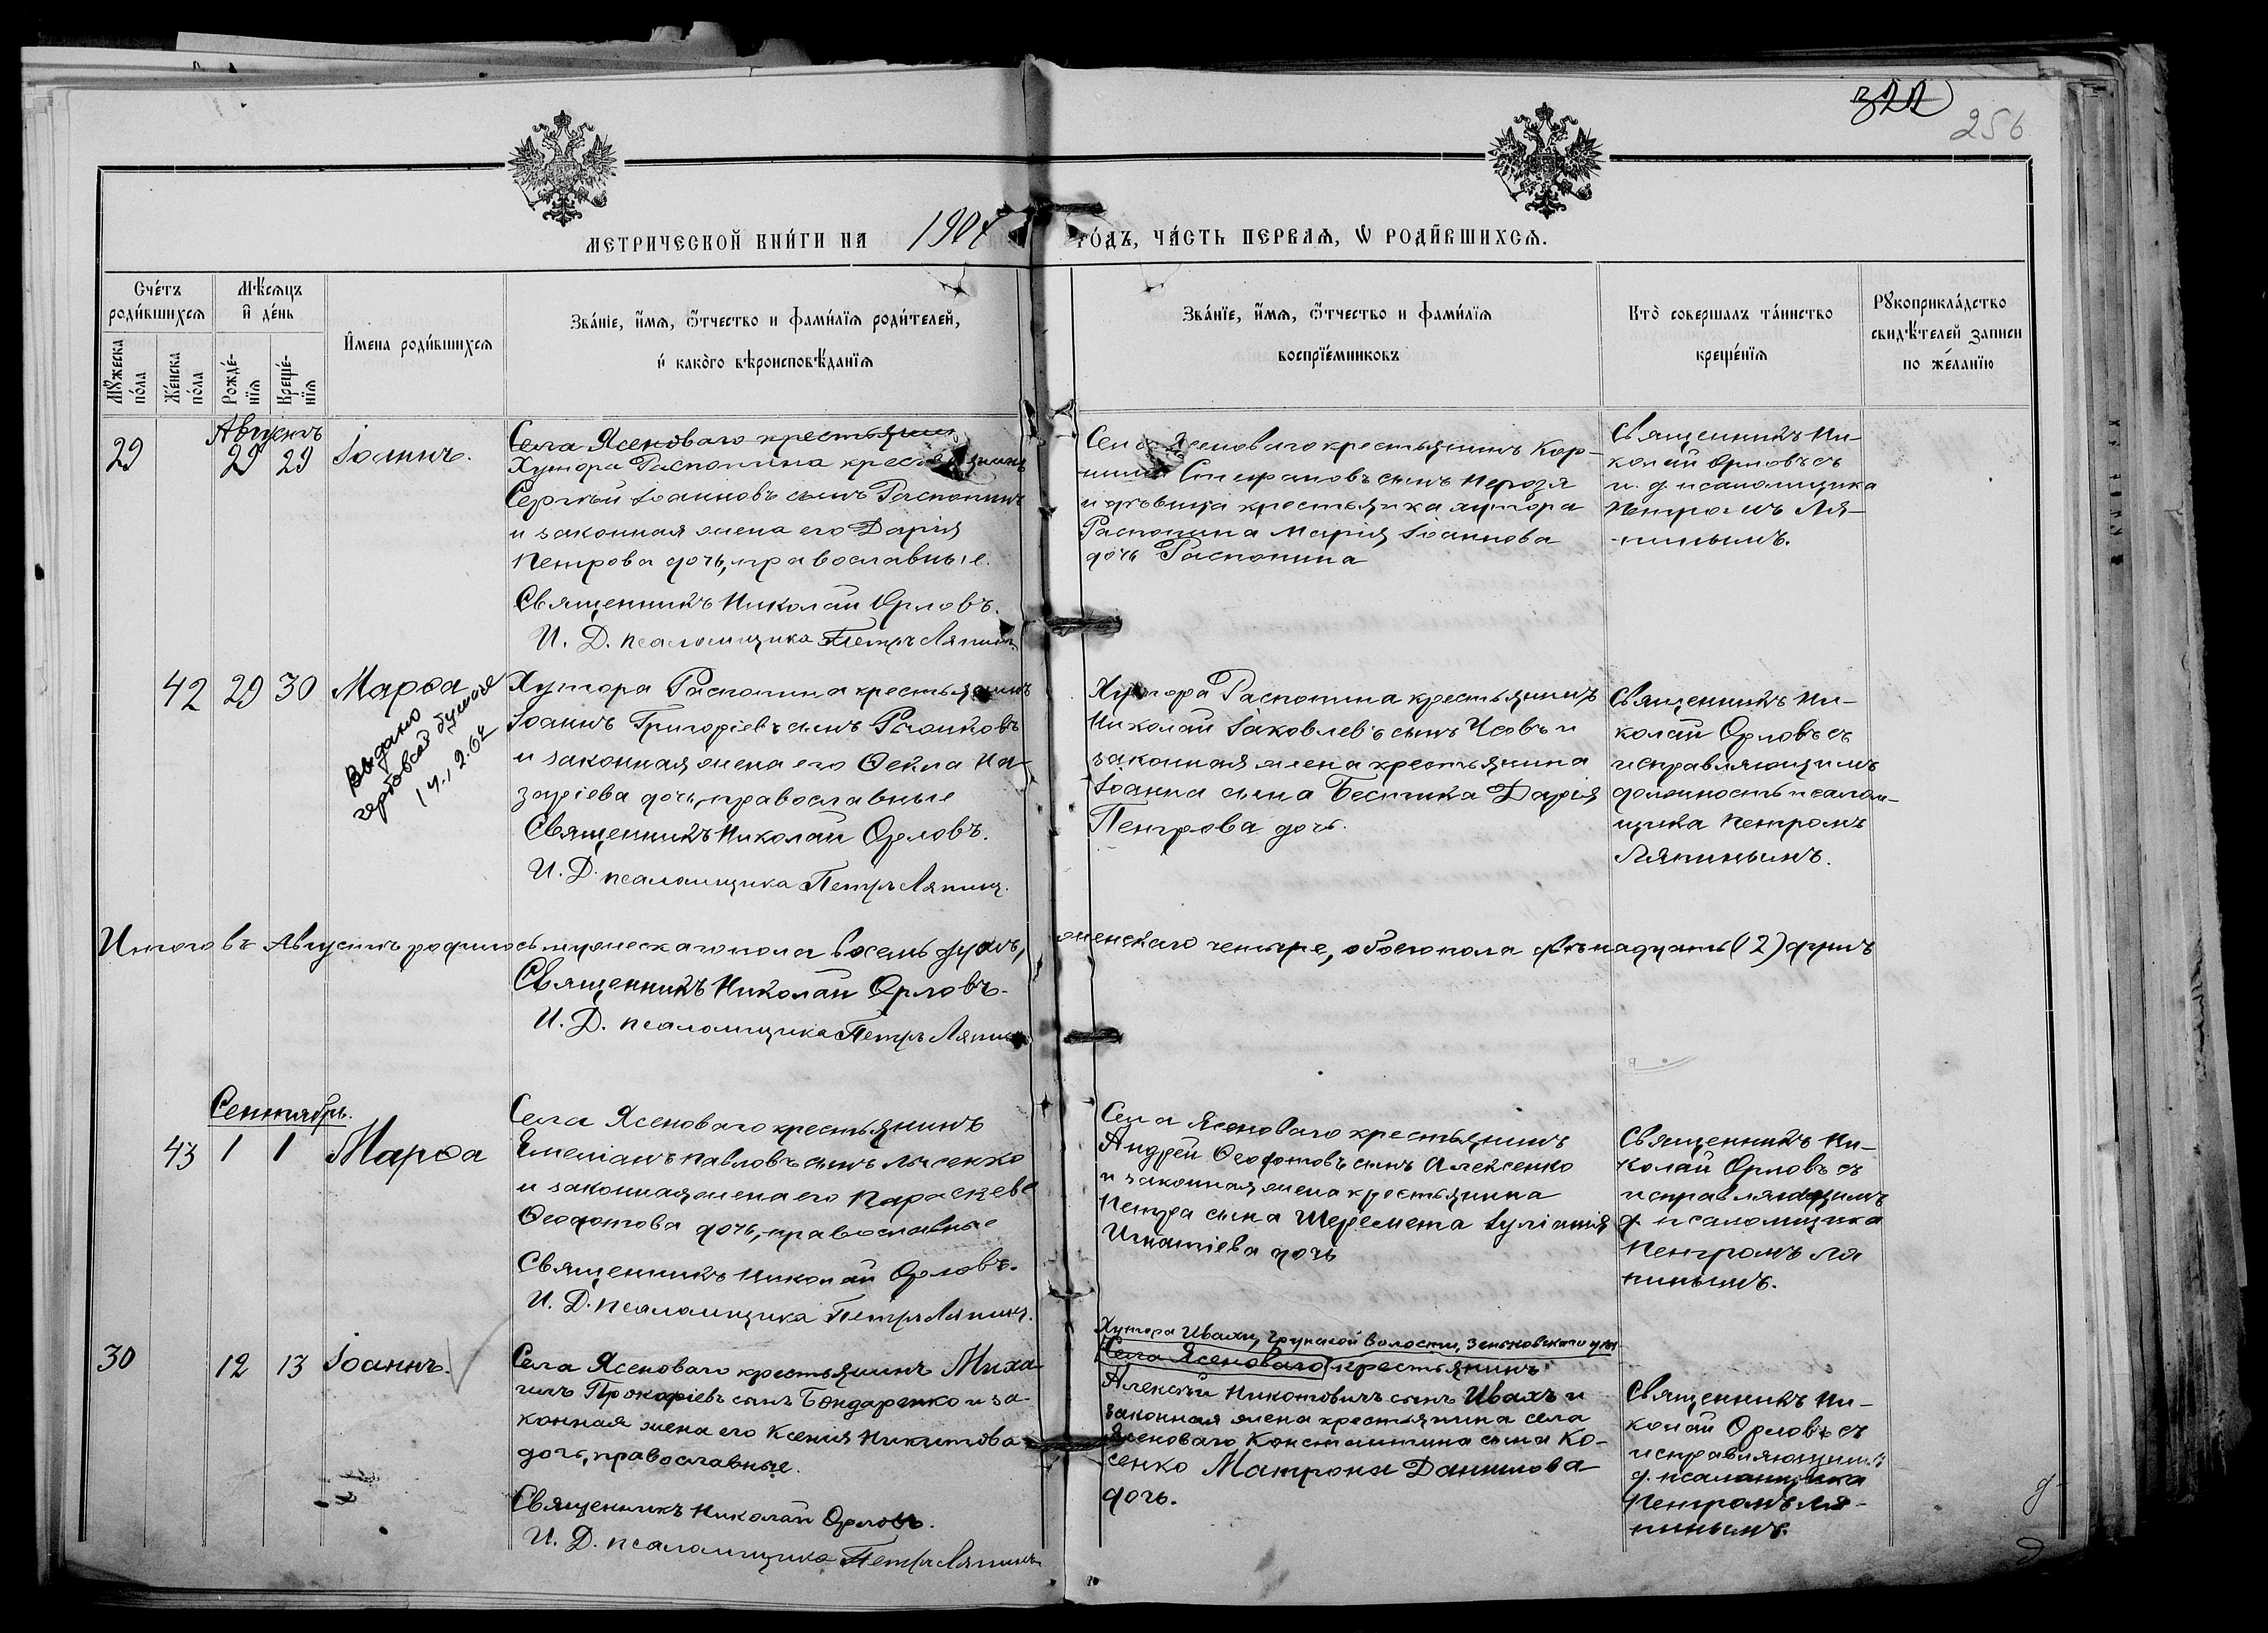 322
256
МЕТРИЧЕСКОЙ КНИ́ГИ НА 1907 ГО́ДЪ, ЧА́СТЬ ПЕРВАѦ, Ѡ РОДИ́ВШИХСѦ.
Сче́тъ роди́вшихсѧ
Мѣ́сѧцъ и҆ де́нь
Мꙋ́жеска по́ла
Же́нска по́ла
Рожде́-нїѧ
Креще́-нїѧ
И҆мена роди́вшихсѧ
Зва́нїе, и҆́мѧ, ѻ҆́тчество и фами́лїѧ роди́телей,
и҆ како́го вѣроисповѣ́данїѧ
Зва́нїе, и҆́мѧ, ѻ҆́тчество и фами́лїѧ
воспрїе́мниковъ
Кто̀ совершалъ та́инство
креще́нїѧ
Рꙋкоприкла́дство
свидѣ́телей записи
по жела́нїю
Августъ
29 29 29 Іоаннъ.
Села Ясеноваго крестьянинъ
Хутора Распопина крестьянинъ
Сергѣй Іоанновъ сынъ Распопинъ
и законная жена его Дарія
Петрова дочь, православные.
Священникъ Николай Орловъ.
И. Д. псаломщика Петръ Ляпинъ
Села Ясеноваго крестьянинъ Кор-
нилій Стефановъ сынъ
и дѣвица крестьянка хутора
Распопина Марія Іоаннова
дочь Распопина
Священникъ Ни-
колай Орловъ съ
и. д. псаломщика
Петромъ Ля-
пинымъ.
42 29 30 Марѳа
Выдано
гербовой бумаге
Хутора Распопина крестьянинъ
Іоаннъ Григоріевъ сынъ
и законная жена его Ѳекла На-
заріева дочь, православные
Священникъ Николай Орловъ.
И. Д. псаломщика Петръ Ляпинъ.
Хутора Распопина крестьянинъ
Николай Іаковлевъ сынъ Чсовъ и
законная жена крестьянина
Іоанна сына Дарія
Петрова дочь.
Священникъ Ни-
колай Орловъ съ
исправляющимъ
должность псалом-
щика Петромъ
Ляпинымъ.
Итого въ Августѣ родилось мужескаго пола восемь душъ, женскаго четыре, обоего пола двѣнадцать (12) душъ
Священникъ Николай Орловъ.
И. Д. псаломщика Петръ Ляпинъ
Сентябрь.
43 1 1 Марѳа
Села Ясеноваго крестьянинъ
Емеліанъ Павловъ сынъ Лысенко
и законная жена его Параскева
Ѳеодотова дочь, православные
Священникъ Николай Орловъ.
И. Д. псаломщика Петръ Ляпинъ.
Села Ясеноваго крестьянинъ
Андрей Ѳеодотовъ сынъ Алексенко
и законная жена крестьянина
Петра сына Шеремета Іуліанія
Игнатіева дочь
Священникъ Ни-
колай Орловъ съ
исправляющимъ
д. псаломщика
Петромъ Ля
пинымъ.
30 12 13 Іоаннъ.
Села Ясеноваго крестьянинъ Миха-
илъ Прокофіевъ сынъ Бондаренко и за-
конная жена его Ксенія Никитова
дочь, православные.
Священникъ Николай Орловъ.
И. Д. псаломщика Петръ Ляпинъ
Хутора Ивахи, Грунской волости, Зеньковскаго уѣз
Села Ясеноваго крестьянинъ
Алексѣй сынъ Ивахъ и
законная жена крестьянина села
Ясеноваго Константина сына Ко-
сенко Матрона Даниилова
дочь.
Священникъ Ни-
колай Орловъ съ
исправляющимъ
д. псаломщика
Петромъ Ля-
пинымъ.